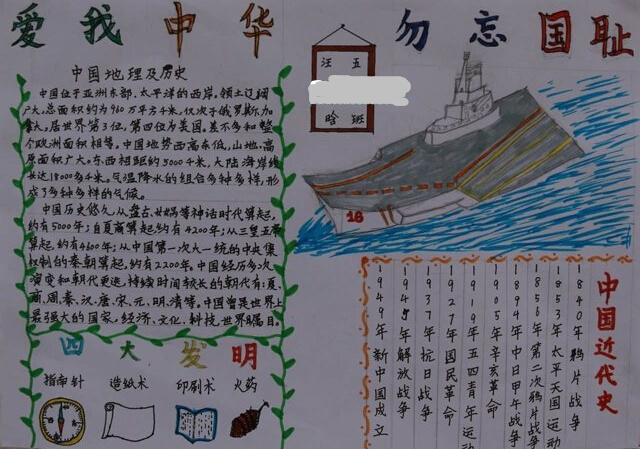 爱我中华
勿忘国耻
中国地理及历史
中国位于亚洲东部、太平洋的西岸。领土辽阔
广大,总面积约为960万平方千米,仅次于俄罗斯、加
拿大,居世界第3位,第四位为美国,差不多和整
个欧洲面积相等。中国地势西高东低,山地、高
原面积广大。东西相距约5000千米,大陆海岸线
长达18000多千米。气温降水的组合多种多样,形
成了多种多样的气候。
中国历史悠久,从盘古、女娲等神话时代算起,
约有5000年;自夏商算起,约有4200年;从三皇五帝
算起,约有4600年;从中国第一次大一统的中央集
权制的秦朝算起,约有2200年。中国经历多次
演变和朝代更迭,持续时间较长的朝代有:夏、
商、周、秦、汉、唐、宋、元、明、清等。中国曾是世界上
最强大的国家,经济、文化、科技世界瞩目。
四大发明
指南针 造纸术 印刷术 火药
五
汪
班
晗
16
中国近代史
1840年鸦片战争
1853年太平天国运动
1856年第二次鸦片战争
1894年中日甲午战争
1905年辛亥革命
1919年五四青年运动
1927年国民革命
1937年抗日战争
1945年解放战争
1949年新中国成立